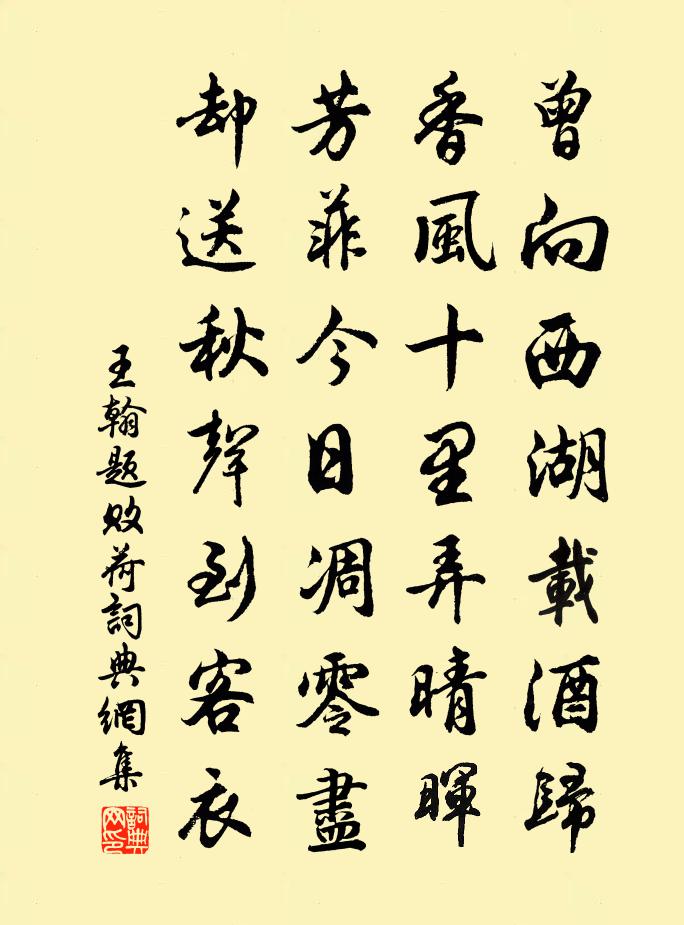 曾向西湖載酒歸
香風十里弄晴暉
芳菲今日凋零盡
却送秋聲到客衣
王翰題敗荷詞典網集
詞典網印